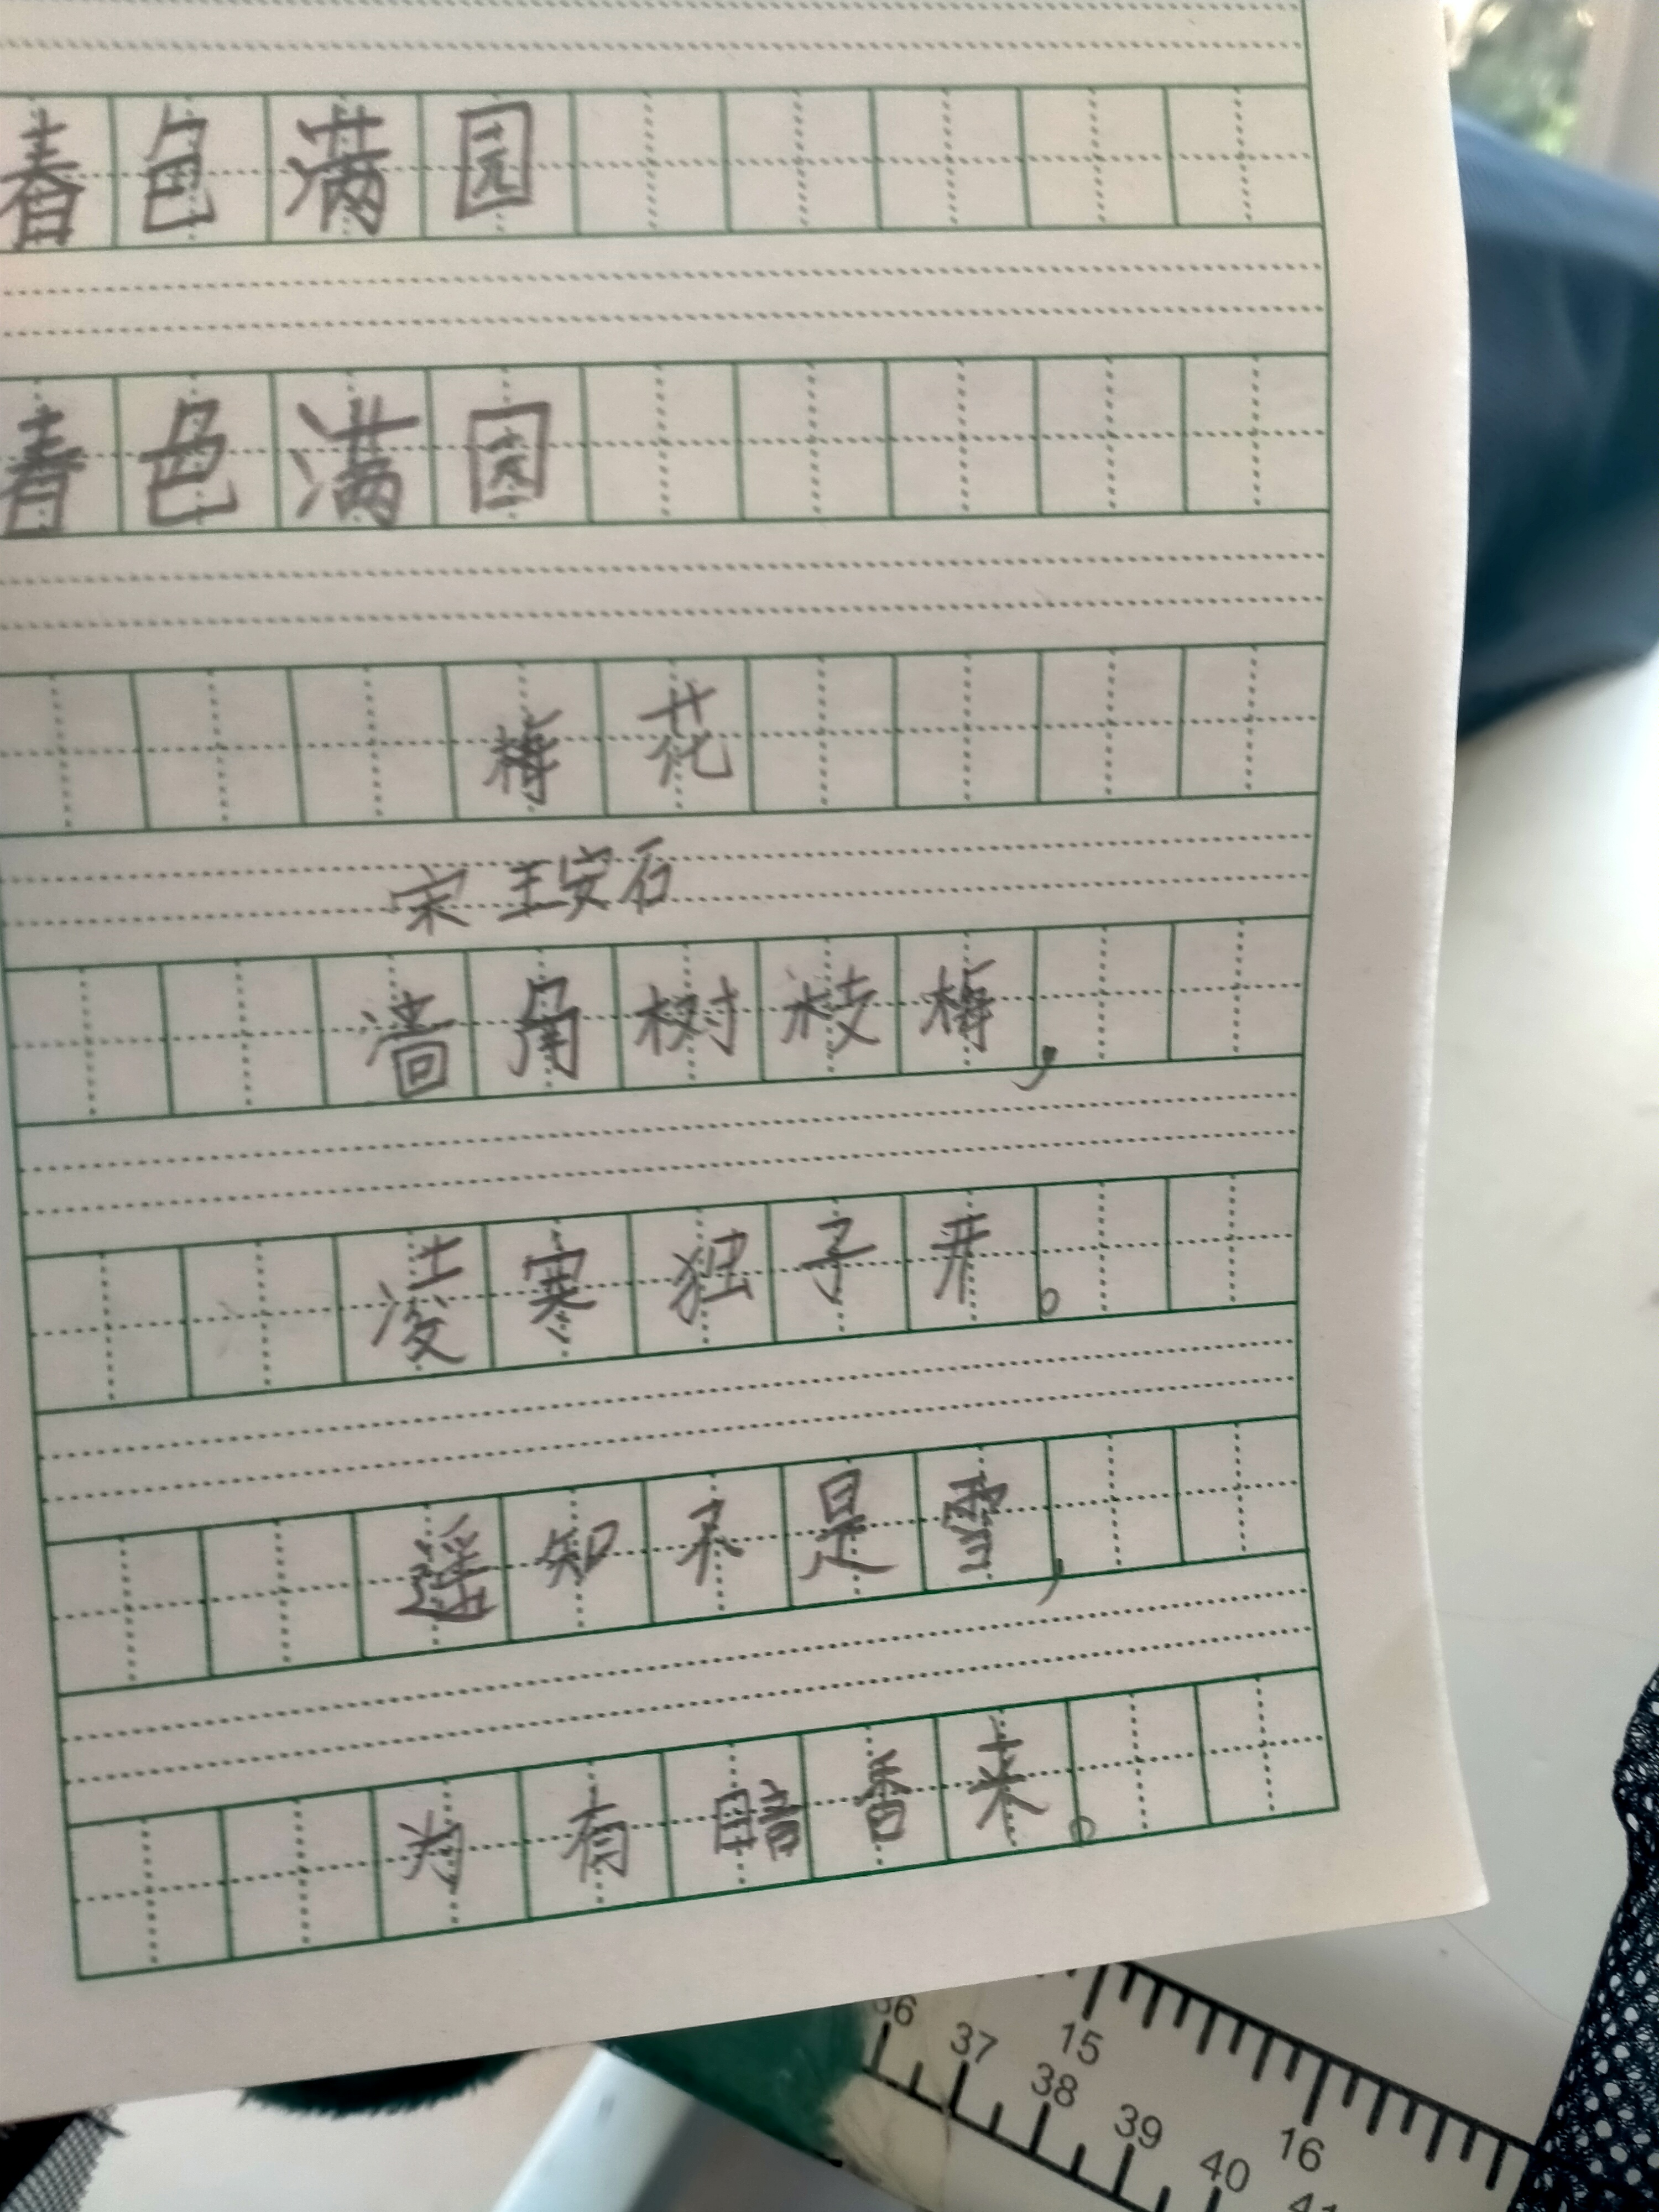 春色满园
春色满园
梅花
宋 王安石
墙角树枝梅，
凌寒独子开。
遥知不是雪，
为有暗香来。
36 37 38 39 40 41
15 16